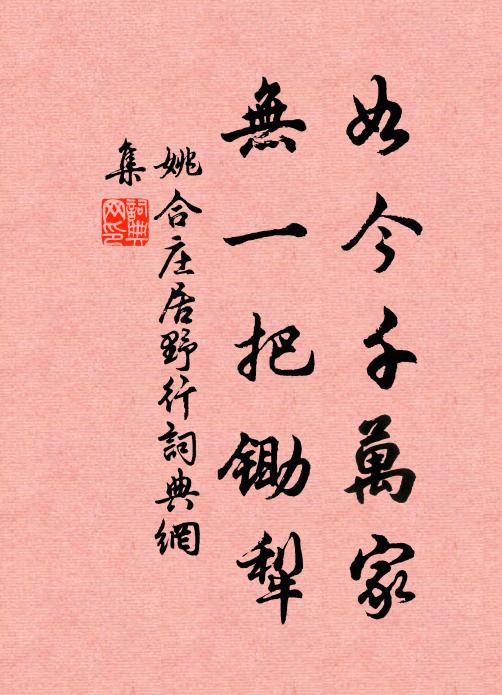 如今千萬家
無一把鋤犁
姚合庄居野行詞典網
集
詞典网印